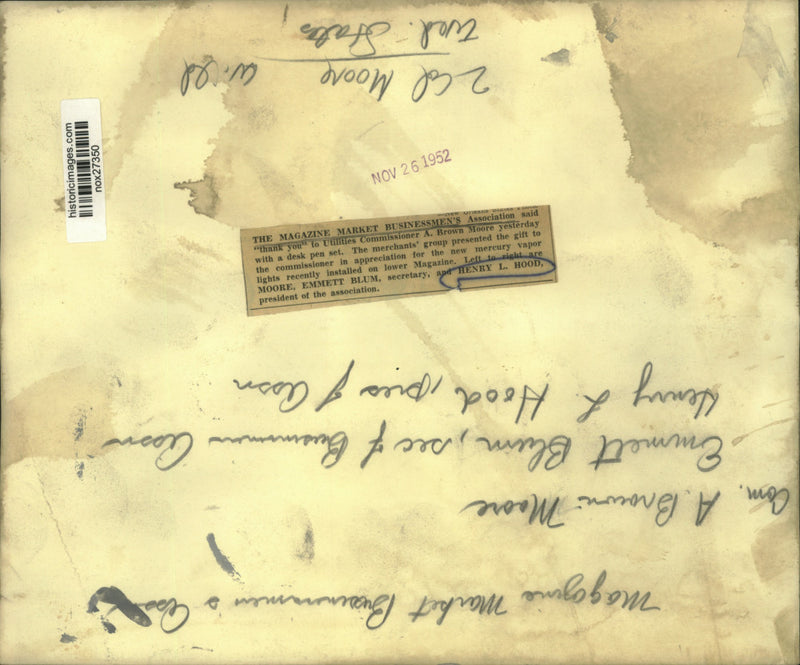 historicimages.com
nox27350
NOV 26 1952
THE MAGAZINE MARKET BUSINESSMEN'S Association said
"thank you" to Utilities Commissioner A. Brown Moore yesterday
with a desk pen set. The merchants' group presented the gift to
the commissioner in appreciation for the new mercury vapor
lights recently installed on lower Magazine. Left to right are
MOORE, EMMETT BLUM, secretary, and HENRY L. HOOD,
president of the association.
Magazine Market Businessmen's Assn
Com. A. Brown Moore
Emmett Blum, sec of Businessmen Assn
Henry L. Hood, pres of Assn
2 Col Moore
Wed. States